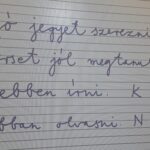 ó jegyet szerezni
rset jól megtanu
ebben írni. K
bban olvasni. N